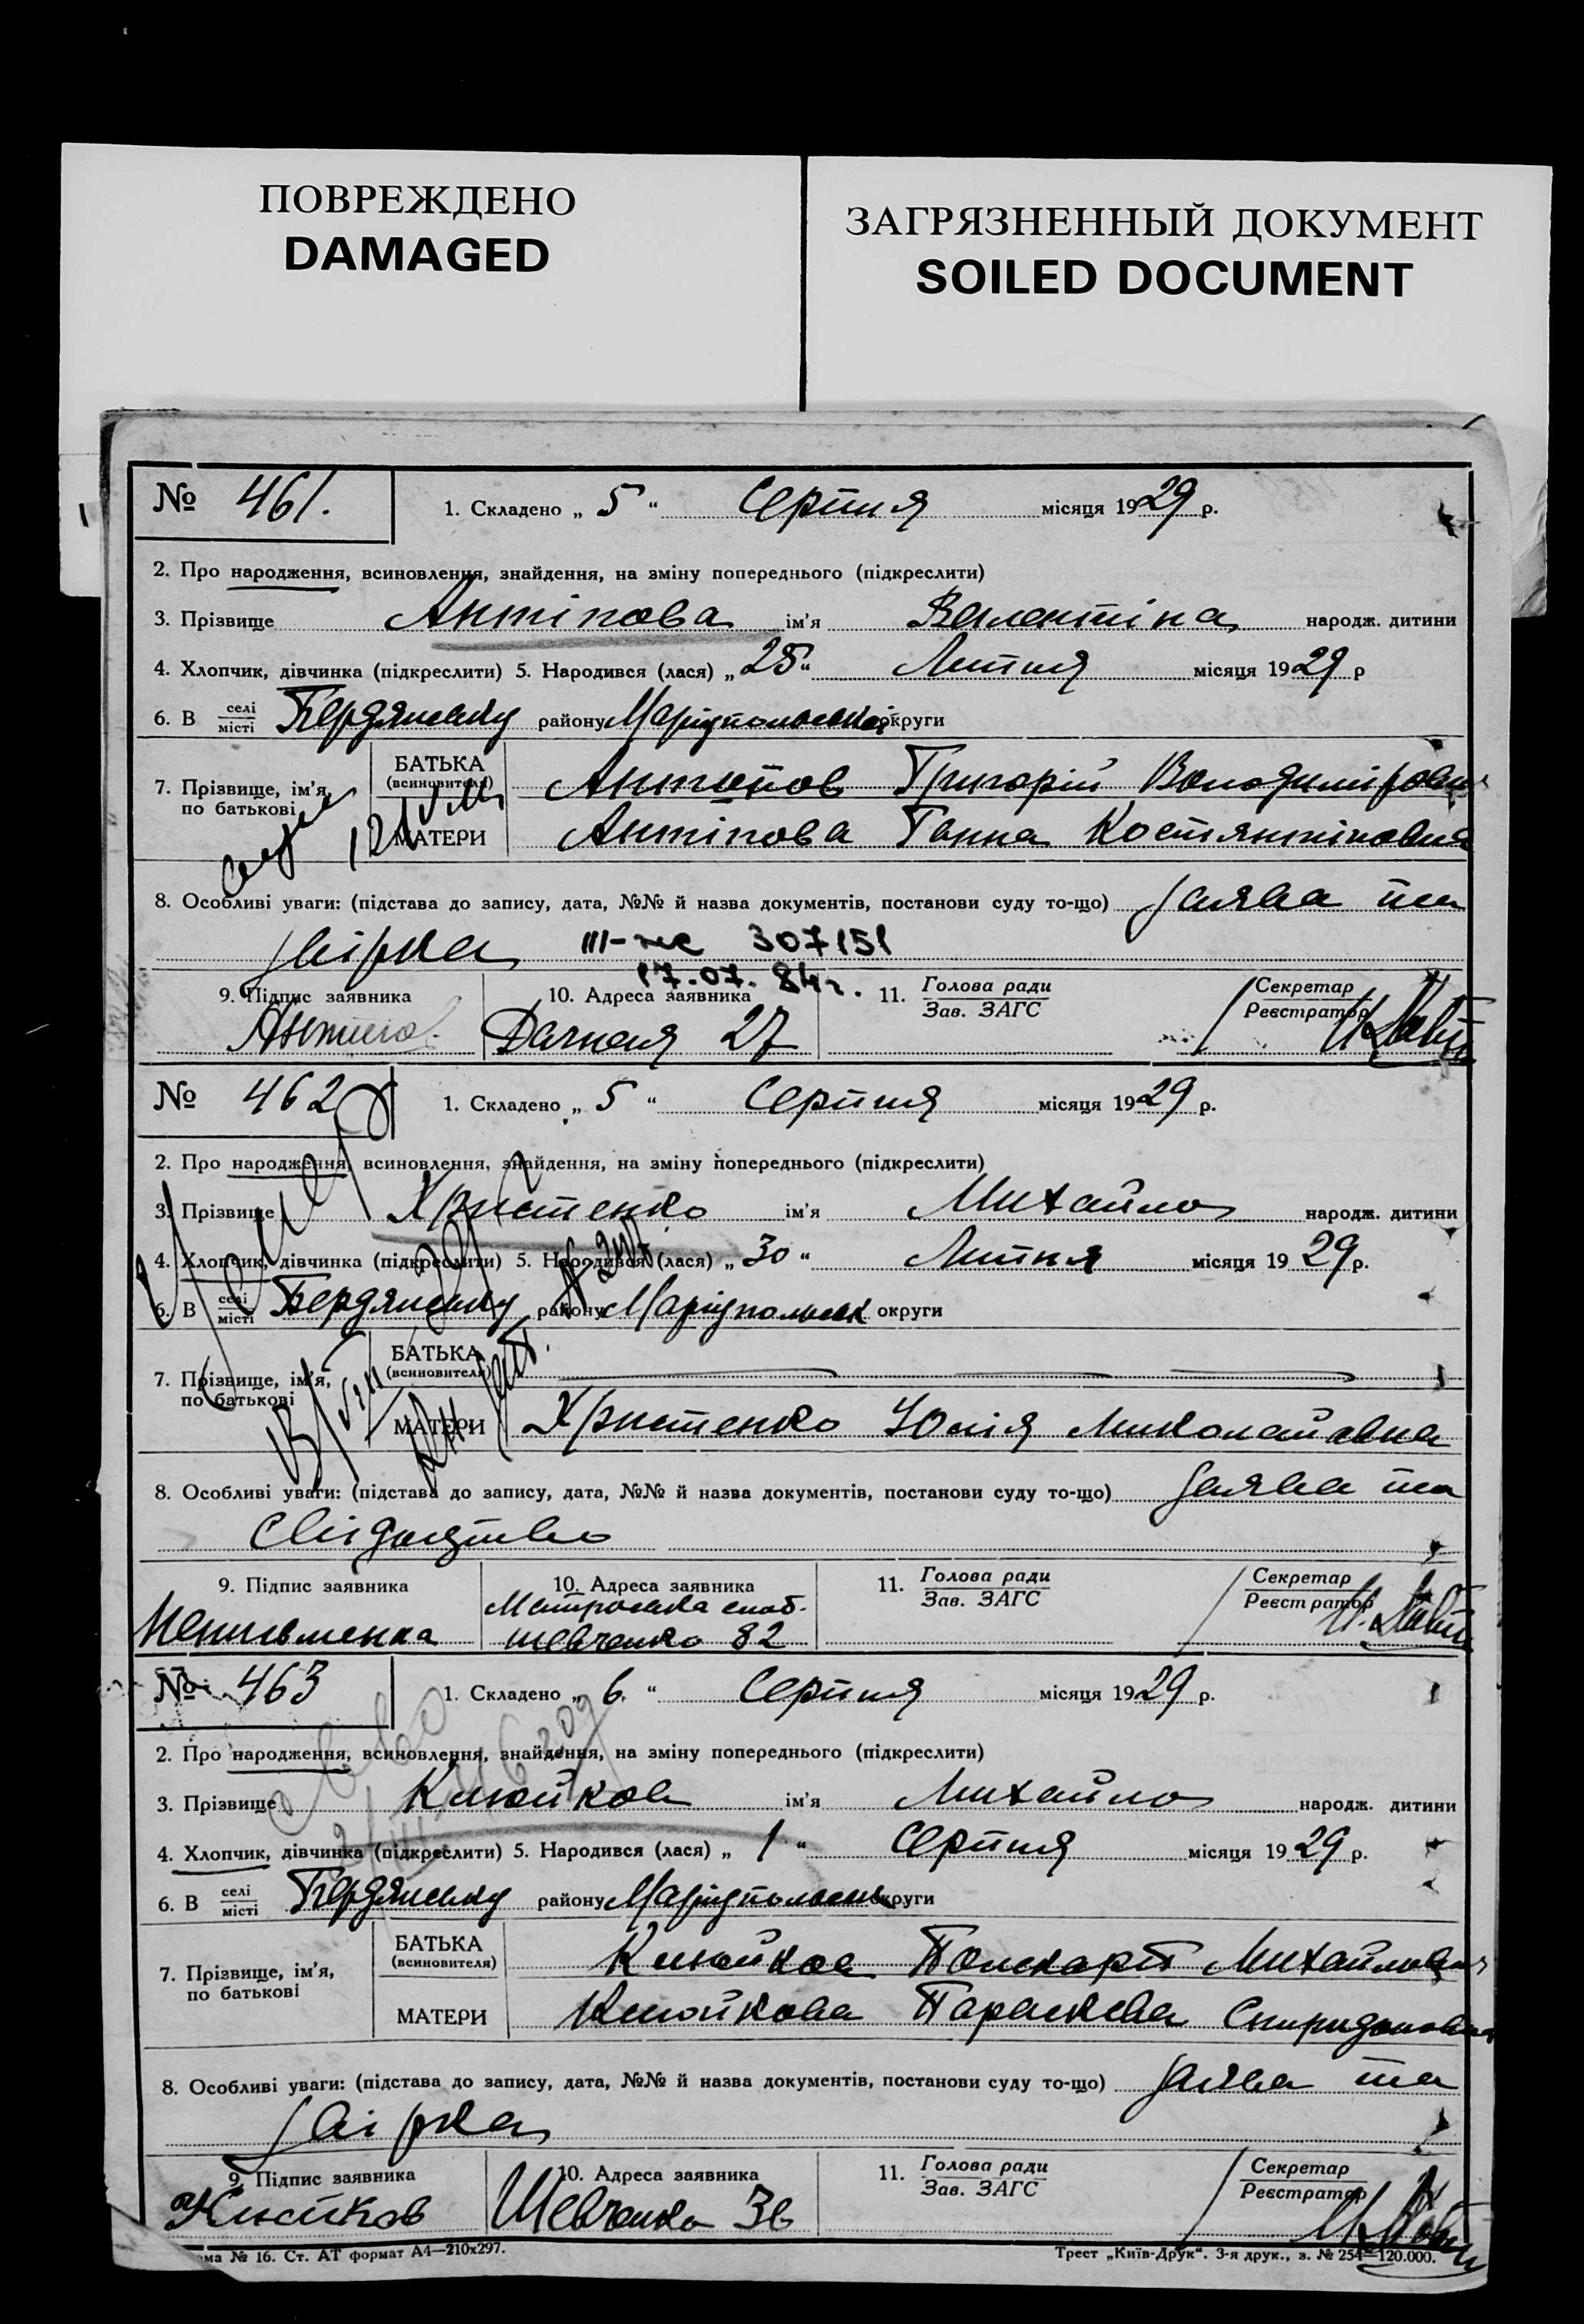 ПОВРЕЖДЕНО
DAMAGED
ЗАГРЯЗНЕННЫЙ ДОКУМЕНТ
SOILED DOCUMENT
№ 461. 1. Складено „ 5 “ Серпня місяця 1929 р.
2. Про народження, всиновлення, знайдення, на зміну попереднього (підкреслити)
3. Прізвище Антіпова ім'я Валентіна народж. дитини
4. Хлопчик, дівчинка (підкреслити) 5. Народився (лася) „ 25 “ Липня місяця 1929 р
6. В селі/місті Бердянську району Маріупольської округи
7. Прізвище, ім'я, по батькові
БАТЬКА (всиновителя) Антипов Григорій Володимірович
МАТЕРИ Антіпова Ганна Костянтіновна
8. Особливі уваги: (підстава до запису, дата, №№ й назва документів, постанови суду то-що) заява та
звірка III-жс 307151
17.07.84г.
9. Підпис заявника 10. Адреса заявника 11. Голова ради/Зав. ЗАГС Секретар/Реєстратор
Дачная 27
№ 462 1. Складено „ 5 “ Серпня місяця 1929 р.
2. Про народження, всиновлення, знайдення, на зміну попереднього (підкреслити)
3. Прізвище Христенко ім'я Михайло народж. дитини
4. Хлопчик, дівчинка (підкреслити) 5. Народився (лася) „ 30 “ Липня місяця 1929 р.
6. В селі/місті Бердянську району Маріупольськ округи
7. Прізвище, ім'я, по батькові
БАТЬКА (всиновителя)
МАТЕРИ Христенко Юлія Миколаївна
8. Особливі уваги: (підстава до запису, дата, №№ й назва документів, постанови суду то-що) заява та
свідоцтво
9. Підпис заявника 10. Адреса заявника 11. Голова ради/Зав. ЗАГС Секретар/Реєстратор
Матроська слоб.
Неписьменна Шевченко 82
№ 463 1. Складено „ 6. “ Серпня місяця 1929 р.
2. Про народження, всиновлення, знайдення, на зміну попереднього (підкреслити)
3. Прізвище Клюйков ім'я Михайло народж. дитини
4. Хлопчик, дівчинка (підкреслити) 5. Народився (лася) „ 1 “ Серпня місяця 1929 р.
6. В селі/місті Бердянську району Маріупольськ округи
7. Прізвище, ім'я, по батькові
БАТЬКА (всиновителя) Клюйков Полікарп Михайлович
МАТЕРИ Клюйкова Параскева Спиридоновна
8. Особливі уваги: (підстава до запису, дата, №№ й назва документів, постанови суду то-що) заява та
звірка
9. Підпис заявника 10. Адреса заявника 11. Голова ради/Зав. ЗАГС Секретар/Реєстратор
Шевченка 36
№ 16. Ст. АТ формат А4—210х297. Трест „Київ-Друк“. 3-я друк., з. № 254—120.000.